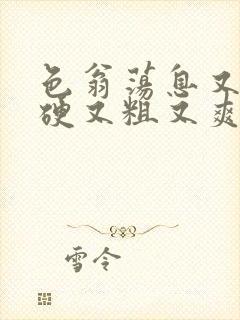 色翁荡息又
硬又粗又爽
雪令